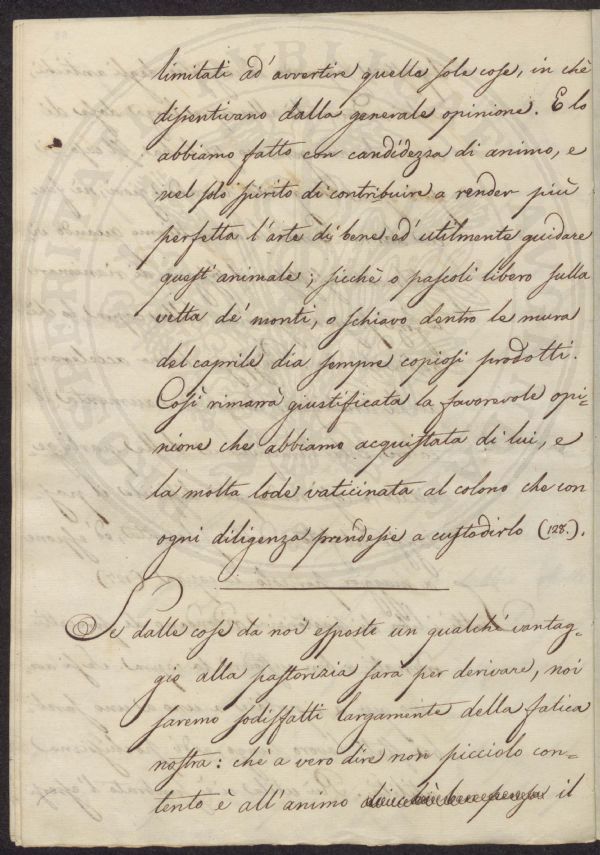 limitati ad' avvertire quelle sole cose, in chè
dissentivano dalla generale opinione. E lo
abbiamo fatto con candidezza di animo, e
nel solo spirito di contribuire a render più
perfetta l'arte di bene ed' utilmente guidare
quest' animale; sicchè o pascoli libero sulla
vetta de' monti, o schiavo dentro le mura
del caprile dia sempre copiosi prodotti.
Così rimarrà giustificata la favorevole opi=
nione che abbiamo acquistata di lui, e
la molta lode vaticinata al colono che con
ogni diligenza prendesse a custodirlo (128.).
Se dalle cose da noi esposte un qualche vantag=
gio alla pastorizia sarà per derivare, noi
saremo sodisfatti largamente della fatica
nostra: chè a vero dire non picciolo con=
tento è all' animo il